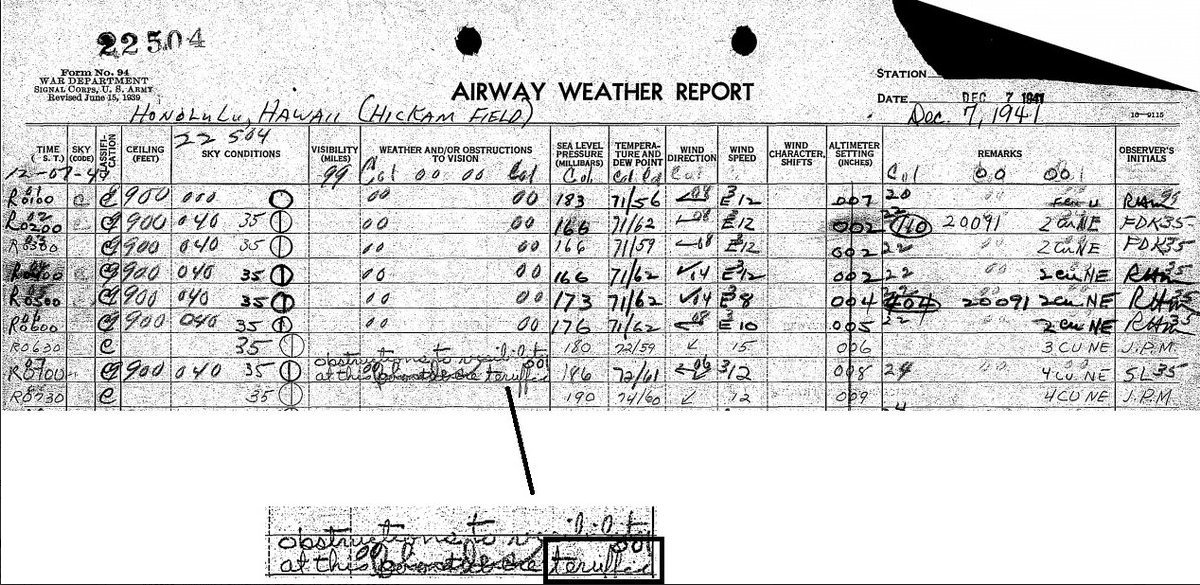 22504
Form No. 94
WAR DEPARTMENT
SIGNAL CORPS, U. S. ARMY
Revised June 15, 1939
AIRWAY WEATHER REPORT
STATION
DATE DEC 7 1941
HONOLULU, HAWAII (HICKAM FIELD)
Dec. 7, 1941
16-9115
22 504
TIME ( S. T.) SKY (CODE) CLASSIFICATION CEILING (FEET) SKY CONDITIONS VISIBILITY (MILES) WEATHER AND/OR OBSTRUCTIONS TO VISION SEA LEVEL PRESSURE (MILLIBARS) TEMPERATURE AND DEW POINT WIND DIRECTION WIND SPEED WIND CHARACTER, SHIFTS ALTIMETER SETTING (INCHES) REMARKS OBSERVER'S INITIALS
12-07-41 99 Cal 00 00 Cal Cal Cal 00 001
R0100 C 900 000 00 00 183 71/56 E 12 007 20 00
R0200 C 900 040 35 00 00 166 71/62 E 12 002 22 110 20091 2 cu NE FDK 35
C 900 040 35 00 00 166 71/59 E 12 002 22 2 cu NE FDK 35
C 900 040 35 00 00 166 71/62 14 E 12 002 22 2 cu NE 35
R0500 C 900 040 35 00 00 173 71/62 14 E 8 004 404 20091 2 cu NE
R0600 C 900 040 35 00 00 176 71/62 E 10 005 22 2 cu NE
R0630 C 35 180 72/59 15 006 3 CU NE J.P.M.
obstructions to
R0700 C 900 040 35 at this 186 72/61 12 008 4 CU NE SL 35
R0730 C 35 190 74/60 12 009 4 CU NE J.P.M.
obstructions to
at this